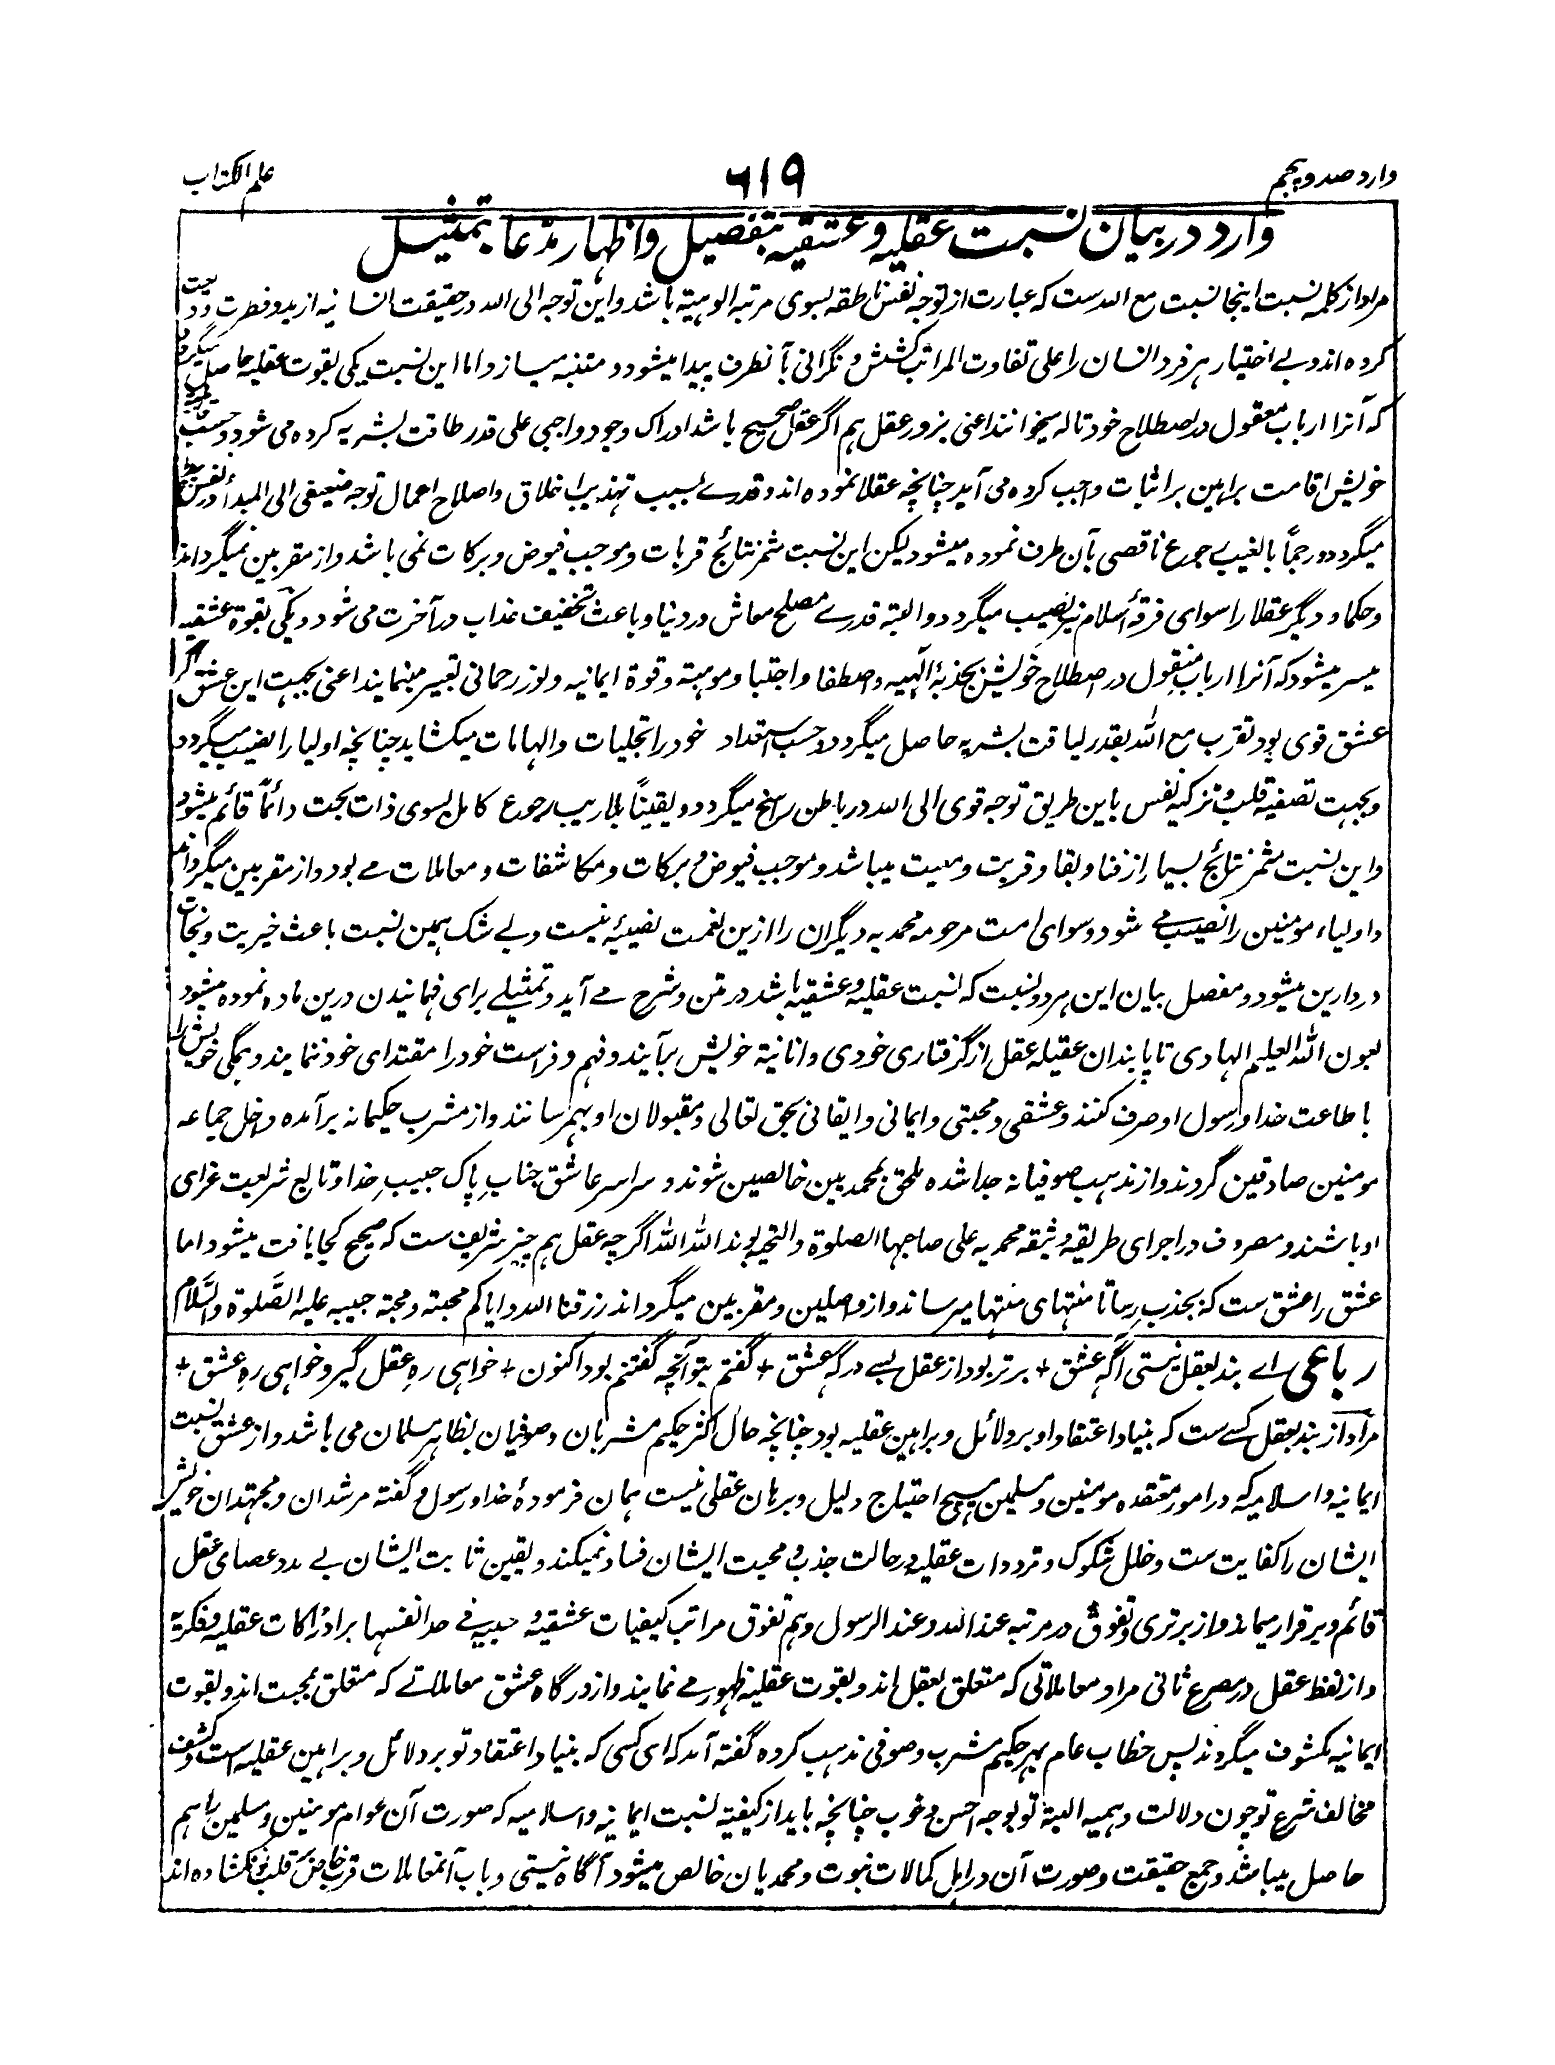 وارد صد و پنجم
۶۱۹
علم الکتاب
وارد در بیان نسبت عقلیه و عشقیه بتفصیل و اظهار مدعا بتمثیل
مراد از کلمه نسبت اینجا نسبت مع الله ست که عبارت از توجه نفس ناطقه بسوی مرتبه الوهیته باشد و این توجه الی الله در حقیقت انسانیه از بدو فطرت ودیعت
کرده اند و بے اختیار هر فرد انسان را علی تفاوت المراتب کشش و نگرانی بآنطرف پیدا میشود و متنبه میسازد اما این نسبت یکی بقوت عقلیه حاصل میگردد
که آنرا ارباب معقول در اصطلاح خود تاله میخوانند اعنی بزور عقل هم اگر عقل صحیح باشد ادراک وجود واجبی علی قدر طاقت بشریه کرده می شود و حسب
خویش اقامت براهین بر اثبات واجب کرده می آید چنانچه عقلا نموده اند و قدرے بسبب تهذیب اخلاق و اصلاح اعمال توجه ضعیفی الی المبدأ در نفس
میگردد و رجماً بالغیب رجوع ناقصی بآن طرف نموده میشود لیکن این نسبت مثمر نتائج قربات و موجب فیوض و برکات نمی باشد و از مقربین نمیگرداند
و حکما و دیگر عقلا را سوای فرقهٔ اسلام نیز نصیب میگردد و البته قدرے مصلح معاش در دنیا و باعث تخفیف عذاب در آخرت می شود و یکی بقوة عشقیه
میسر میشود که آنرا ارباب منقول در اصطلاح خویش بجذبهٔ الٰهیه و اصطفا و اجتبا و موهبة و قوة ایمانیه و نور رحمانی تعبیر مینمایند اعنی بجهت این عشق اگر
عشق قوی بود تقرب مع الله بقدر لیاقت بشریه حاصل میگردد و حسب استعداد خود را تجلیات و الهامات میکشاید چنانچه اولیا را نصیب میگردد
و بجهت تصفیه قلب و تزکیه نفس باین طریق توجه قوی الی الله در باطن راسخ میگردد و یقیناً بلاریب رجوع کامل بسوی ذات بحت دائماً قائم میشود
و این نسبت مثمر نتائج بسیار از فنا و بقا و قربت و معیت میباشد و موجب فیوض و برکات و مکاشفات و معاملات مے بود و از مقربین میگرداند
و اولیاء مومنین را نصیب مے شود و سوای امت مرحومه محمدیه دیگران را ازین نعمت نصیبهٔ نیست و بے شک همین نسبت باعث خیریت و نجات
در دارین میشود و مفصل بیان این هر دو نسبت که نسبت عقلیه و عشقیه باشد در متن و شرح مے آید و تمثیلے برای فهمانیدن درین ماده نموده میشود
بعون الله العلیم الهادی تا پابندان عقیله عقل از گرفتاری خودی و انانیة خویش برآیند و فهم و فراست خود را مقتدای خود ننمایند و همگی خویش را
باطاعت خدا و رسول او صرف کنند و عشقی و محبتی و ایمانی و ایقانی بحق تعالی و مقبولان او بهمرسانند و از مشرب حکیمانه برآمده داخل جماعه
مومنین صادقین گردند و از مذهب صوفیانه جدا شده ملحق بمحمدیین خالصین شوند و سراسر عاشق جنابِ پاک حبیبِ خدا و تابع شریعت غرای
او باشند و مصروف در اجرای طریقه وثیقه محمدیه علی صاحبها الصلوة والتحیه بوند الله الله اگرچه عقل هم چیز شریف ست که صحیح کجا یافت میشود اما
عشق را عشق ست که بجذب رسا تا منتهای منتها میرساند و از واصلین و مقربین میگرداند رزقنا الله و ایاکم محبته و محبة حبیبه علیه الصلوة والسلام
رباعی اے بند بعقل نیستی آگهٔ عشق + برتر بود از عقل بسے درگه عشق + گفتم بتو آنچه گفتنم بود اکنون + خواهی رهِ عقل گیر و خواهی رهِ عشق +
مراد از بند بعقل کسے ست که بنیاد اعتقاد او بر دلائل و براهین عقلیه بود چنانچه حال اکثر حکیم مشربان و صوفیان بظاهر مسلمان می باشد و از عشق نسبت
ایمانیه و اسلامیه که در امور معتقده مومنین و مسلمین هیچ احتیاج دلیل و برهان عقلی نیست همان فرمودهٔ خدا و رسول و گفته مرشدان و مجتهدان خویش
ایشان را کفایت ست و خلل شکوک و ترددات عقلیه در حالت جذب و محبت ایشان فساد نمیکند و یقین ثابت ایشان بے مدد عصای عقل
قائم و برقرار میماند و از برتری و تفوق در مرتبه عند الله و عند الرسول و هم تفوق مراتب کیفیات عشقیه و حبیه فی حد انفسها بر ادراکات عقلیه و فکریه
و از لفظ عقل در مصرع ثانی مراد معاملاتی که متعلق بعقل اند و بقوت عقلیه ظهور مے نمایند و از درگاه عشق معاملاتے که متعلق بمحبت اند و بقوت
ایمانیه مکشوف میگردند پس خطاب عام بهر حکیم مشرب و صوفی مذهب کرده گفته آمد که ای کسی که بنیاد اعتقاد تو بر دلائل و براهین عقلیه است و کشف
مخالف شرع تو چون دلالت وهمیه البته تو بوجه احسن و خوب چنانچه باید از کیفیة نسبت ایمانیه و اسلامیه که صورت آن عوام مومنین و مسلمین را هم
حاصل میباشد و جمع حقیقت و صورت آن در اهل کمالات نبوت و محمدیان خالص میشود آگاه نیستی و باب آنمعاملات قرب خاص بر قلب تو نکشاده اند